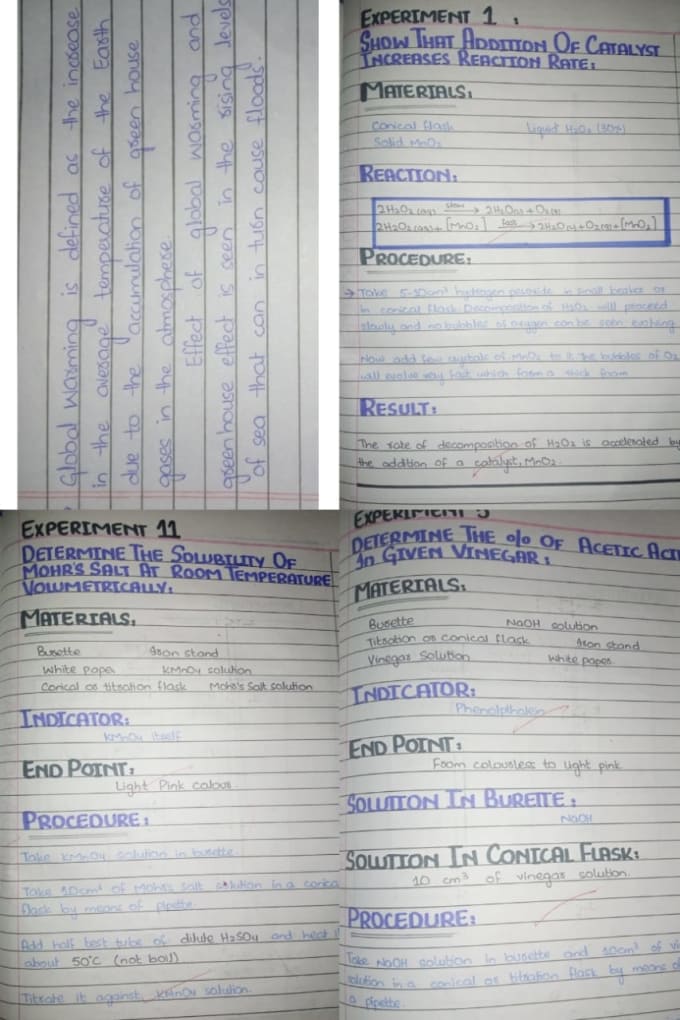 Global Warming is defined as the increase
in the average temperature of the Earth
due to the accumulation of green house
gases in the atmosphere.
Effect of global warming and
green house effect is seen in the rising levels
of sea that can in turn cause floods.
EXPERIMENT 1:
SHOW THAT ADDITION OF CATALYST
INCREASES REACTION RATE:
MATERIALS:
Conical flask Liquid H₂O₂ (30%)
Solid MnO₂
REACTION:
2H₂O₂(aq) slow → 2H₂O(l) + O₂(g)
2H₂O₂(aq) + [MnO₂] fast → 2H₂O(l) + O₂(g) + [MnO₂]
PROCEDURE:
→ Take 5-10cm³ hydrogen peroxide in small beaker or
in conical flask Decomposition of H₂O₂ will proceed
slowly and no bubbles of oxygen can be seen evolving
Now add few crystals of MnO₂ to it the bubbles of O₂
will evolve very fast which form a thick foam
RESULT:
The rate of decomposition of H₂O₂ is accelerated by
the addition of a catalyst, MnO₂.
EXPERIMENT 11
DETERMINE THE SOLUBILITY OF
MOHR'S SALT AT ROOM TEMPERATURE
VOLUMETRICALLY:
MATERIALS:
Burette Iron stand
White Paper KMnO₄ solution
Conical or titration flask Mohr's Salt solution
INDICATOR:
KMnO₄ itself
END POINT:
Light Pink colour
PROCEDURE:
Take KMnO₄ solution in burette.
Take 10cm³ of Mohr's salt solution in a conica
flask by means of pipette.
Add half test tube of dilute H₂SO₄ and heat
about 50°C (not boil)
Titrate it against KMnO₄ solution.
EXPERIMENT
DETERMINE THE o/o OF ACETIC ACI
In GIVEN VINEGAR:
MATERIALS:
Burette NaOH solution
Titration or conical flask Iron stand
Vinegar Solution White paper
INDICATOR:
Phenolpthalein
END POINT:
From colourless to light pink
SOLUTION IN BURETTE:
NaOH
SOLUTION IN CONICAL FLASK:
10 cm³ of vinegar solution.
PROCEDURE:
Take NaOH solution in burette and 10cm³ of vi
solution in a conical or titration flask by means o
a pipette.